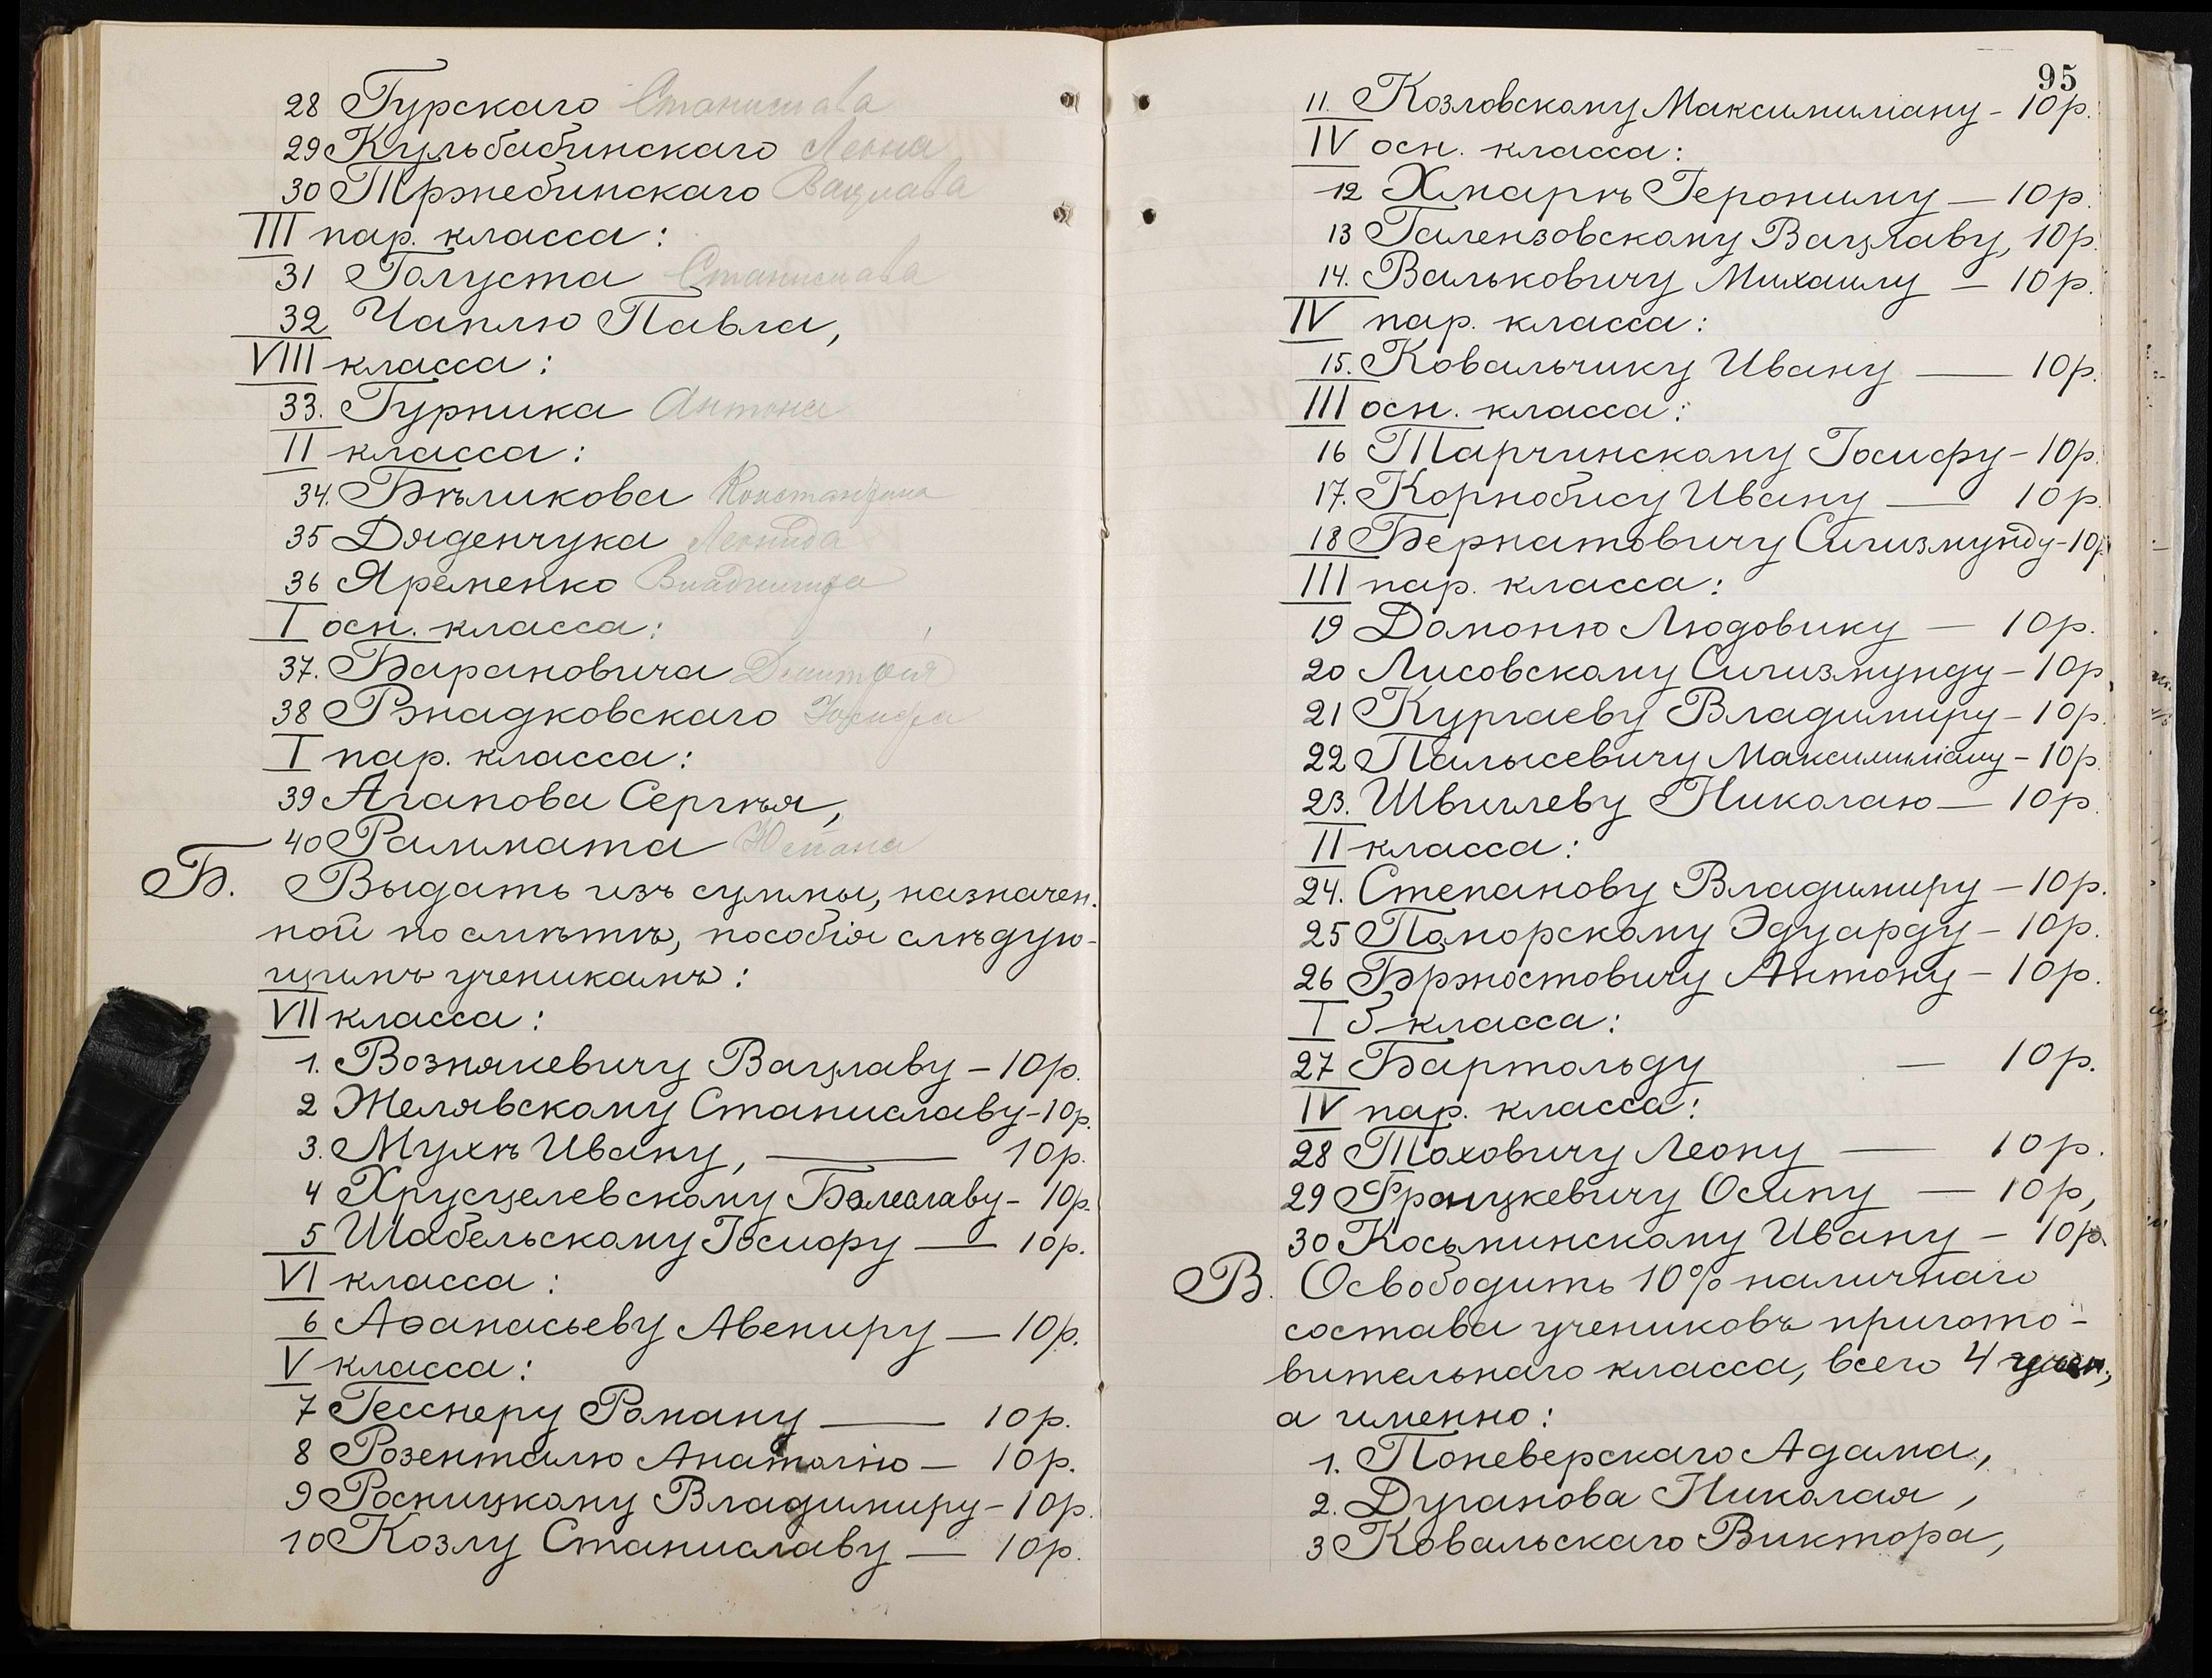 28 Гурскаго Станислава
29 Кульбабинскаго Леона
30 Тржебинскаго Вацлава
III пар. класса:
31 Голуста Станислава
32 Чаплю Павла,
VIII класса:
33. Гурника Антона
II класса:
34. Бѣликова Константина
35 Дяденчука Леонида
36 Яременко Владимира
I осн. класса:
37. Барановича Димитрія
38 Ржадковскаго Іосифа
I пар. класса:
39 Агапова Сергѣя,
40 Раммата
Б. Выдать изъ суммы, назначен-
ной по смѣтѣ, пособія слѣдую-
щимъ ученикамъ:
VII класса:
1. Вознякевичу Вацлаву – 10р.
2 Желявскому Станиславу – 10р.
3. Мухѣ Ивану, — 10р.
4 Хрусцелевскому Болеславу – 10р.
5 Шабельскому Іосифу — 10р.
VI класса:
6 Аѳанасьеву Авениру — 10р.
V класса:
7 Гесснеру Роману — 10р.
8 Розенталю Анатолію — 10р.
9 Росницкому Владимиру – 10р.
10 Козлу Станиславу — 10р.
95
11. Козловскому Максимиліану – 10р.
IV осн. класса:
12 Хмарѣ Герониму — 10р.
13 Галензовскому Вацлаву, 10р.
14. Вальковичу Михаилу – 10р.
IV пар. класса:
15. Ковальчику Ивану — 10р.
III осн. класса:
16 Тарчинскому Іосифу – 10р.
17. Корнобису Ивану — 10р.
18 Бернатовичу Сигизмунду – 10р.
III пар. класса:
19 Домоню Людовику — 10р.
20 Лисовскому Сигизмунду – 10р.
21 Кургаеву Владимиру – 10р.
22 Палысевичу Максимиліану – 10р.
23. Швилеву Николаю — 10р.
II класса:
24. Степанову Владимиру – 10р.
25 Поморскому Эдуарду – 10р.
26 Бржостовичу Антону – 10р.
I Б класса:
27 Бартольду — 10р.
IV пар. класса:
28 Тоховичу Леону — 10р.
29 Францкевичу Осипу — 10р,
30 Косьминскому Ивану – 10р.
В. Освободить 10% наличнаго
состава учениковъ пригото-
вительнаго класса, всего 4 учен.,
а именно:
1. Поневерскаго Адама,
2. Дуганова Николая,
3 Ковальскаго Виктора,